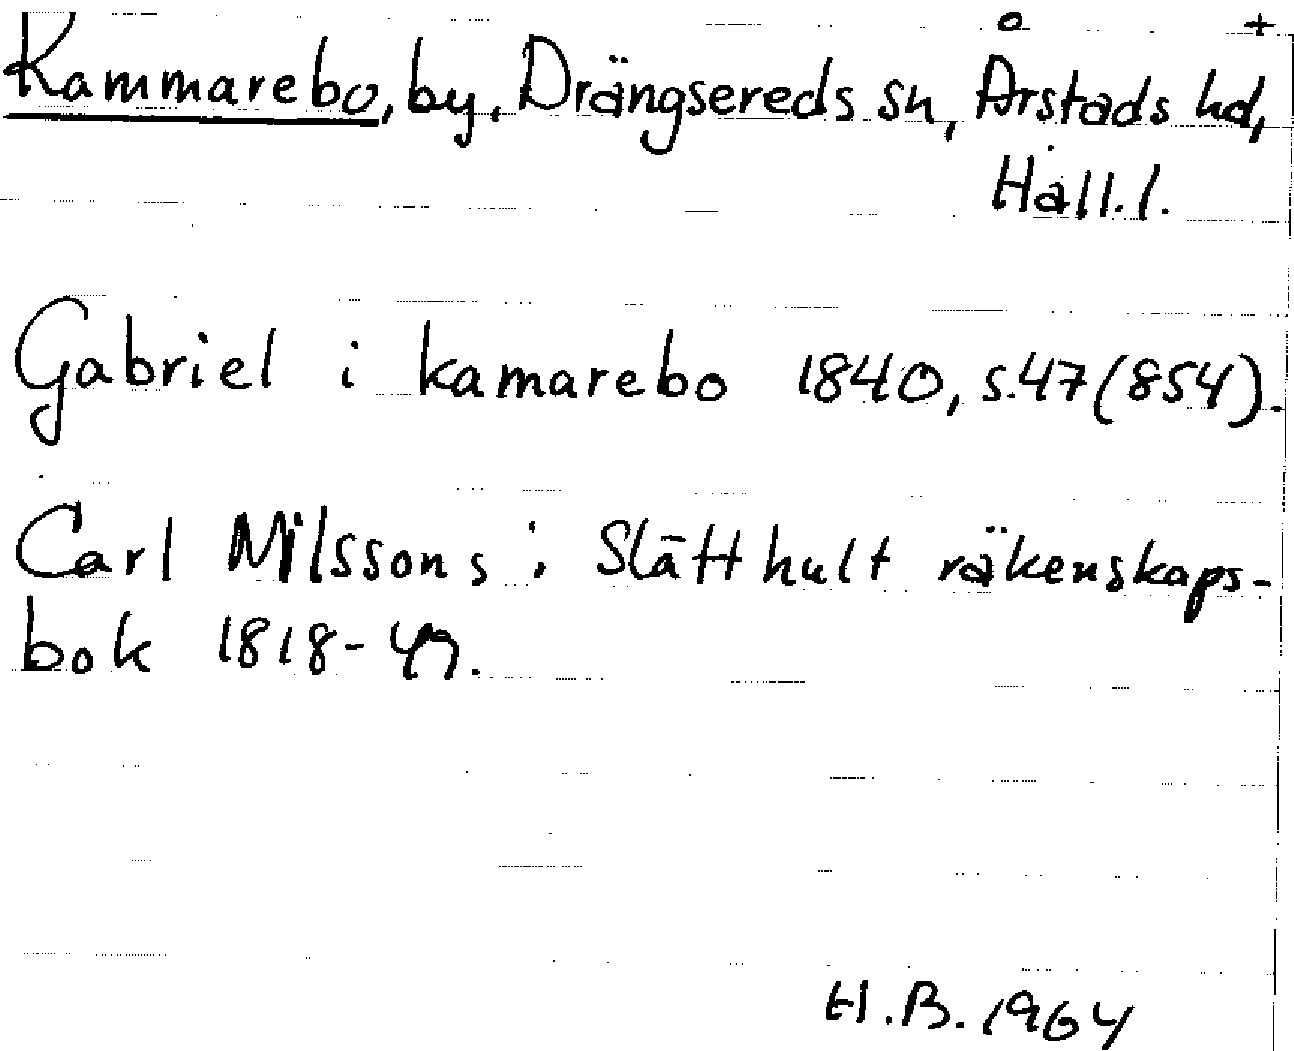 Kammarebo, by, Drängsereds sn, Årstads hd, +
Hall.l.
Gabriel i kamarebo 1840, s.47 (854).
Carl Nilssons i Slätthult räkenskaps-
bok 1818-49.
H.B. 1964